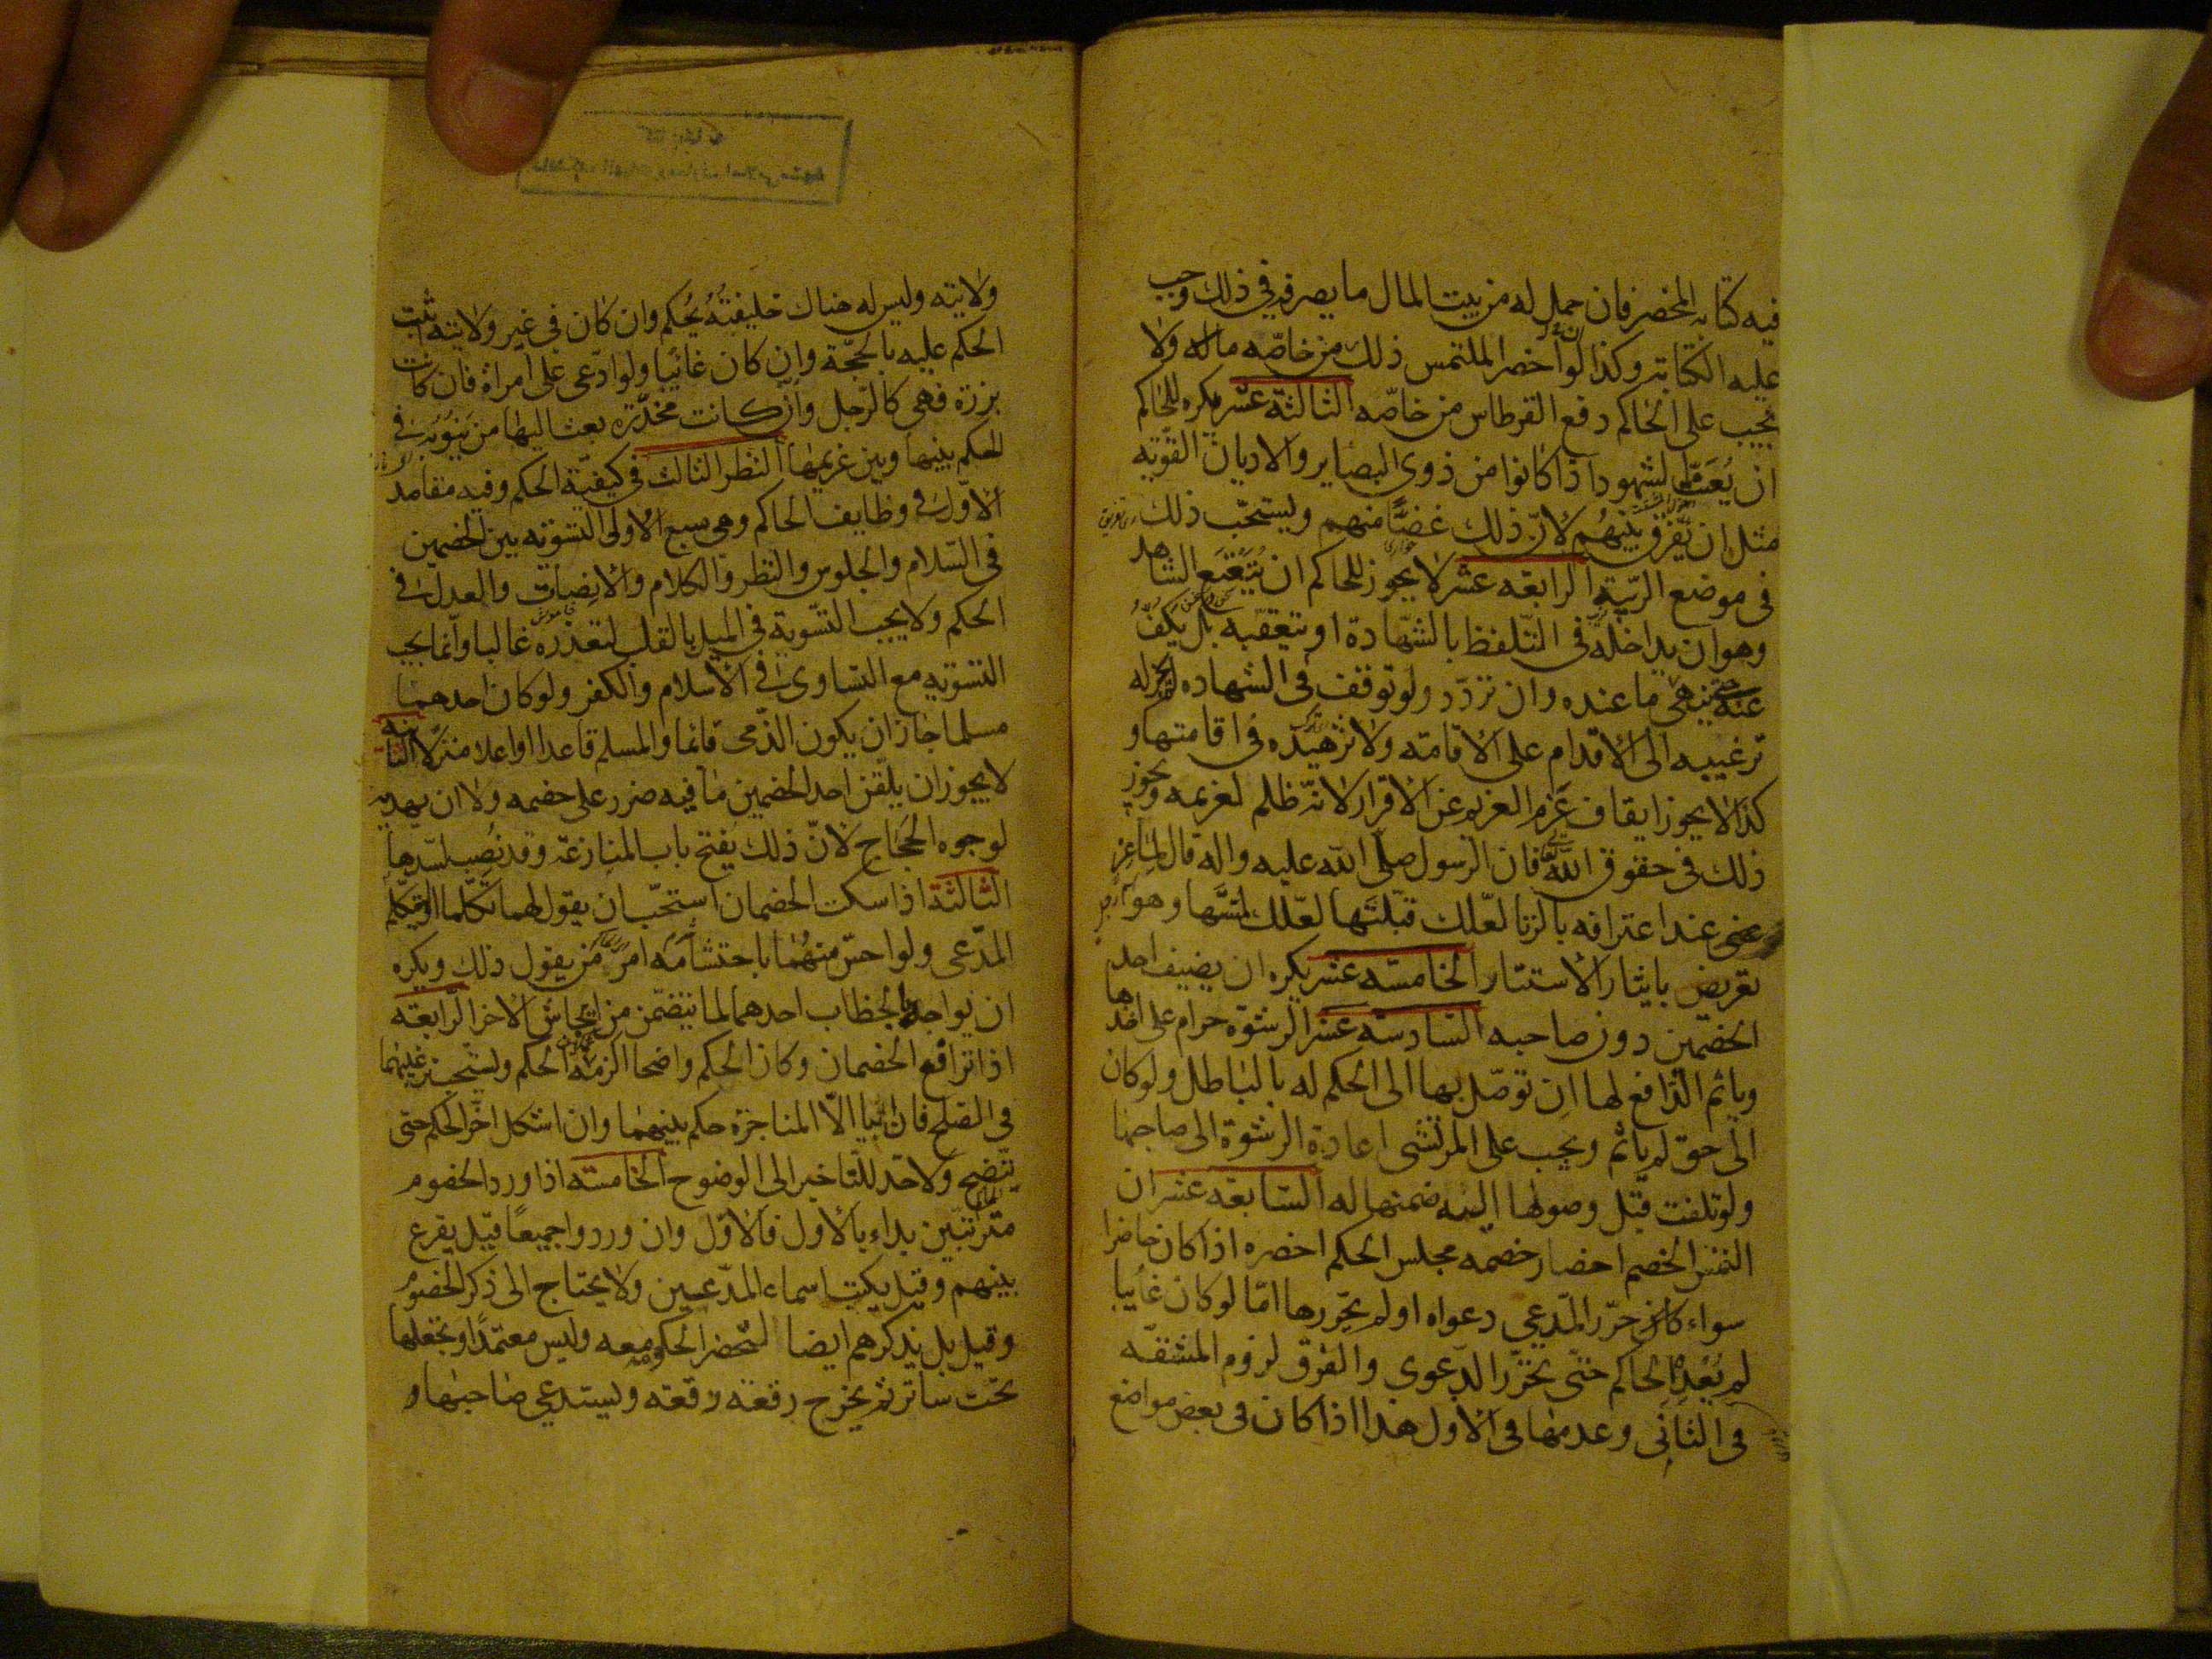 فيه كتابة المحضر فان حمل له من بيت المال ما يصرفه في ذلك وجب
عليه الكتابة وكذا لو احضر الملتمس ذلك من خاصّه ماله ولا
يجب على الحاكم دفع القرطاس من خاصّه الثالثة عشر يكره للحاكم
ان يُعَنِّت الشهود اذا كانوا من ذوي البصاير والاديان القوّية
مثل ان يفرّق بينهُم لانّ ذلك غضّا منهم ويستحبّ ذلك
في موضع الرّيبة الرابعة عشر لا يجوز للحاكم ان يُتَعْتِعَ الشاهد
وهو ان يداخله في التّلفظ بالشّهادة او يتعقّبه بل يَكُفُّ
عنه حتى ينهي ما عنده وان تردّد ولو توقف في الشهاده لم يجز له
ترغيبه الى الاقدام على الاقامته ولا تزهيده في اقامتها و
كذا لا يجوز ايقاف عَزْم الغريم عن الاقرار لانّه ظلم لغريمه ويجوز
ذلك في حقوق اللّه فان الرسول صلّى الله عليه واله قال لماعز
عند اعترافه بالزنا لعّلك قبّلتَها لعّلك لمَسْتَها وهو
تعريض بايثار الاستتار الخامسّه عشر يكره ان يضيف احد
الخصمين دون صاحبه السّادسّه عشر الرشوّه حرام على اخذها
وياثم الدّافع لها ان توصّل بها الى الحكم له بالباطل ولو كان
الى حق لم ياثم ويجب على المرتشي اعادة الرشوة الى صاحبها
ولو تلفت قبل وصولها اليه ضمنها له السّابعّه عشر ان
التمس الخصم احضار خصمه مجلس الحكم احضره اذا كان حاضرا
سواء كان حرّر المدّعي دعواه اولم يحّررها امّا لو كان غائبا
لم يُعْدِهِ الحاكم حتّى يحرّر الدّعوى والفرق لزوم المشقّه
في الثاني وعدمها في الاول هذا اذا كان في بعض مواضع
ولايته وليس له هناك خليفتهُ يُحكم وان كان في غير ولايته اثبت
الحكم عليه بالحجّة وان كان غائبا ولو ادّعى على امراة فان كانت
برزة فهي كالرّجل وان كانت مخدّرة بعث اليها من يَنُوبُه في
الحكم بينها وبين غريمها النّظر الثالث في كيفيّة الحكم وفيه مقاصد
الاوّل في وظايف الحاكم وهي سبع الاولى التسوية بين الخصمين
في السّلام والجلوس والنظر والكلام والانصات والعدل في
الحكم ولا يجب التسّوية في الميل بالقلب لتعذره غالبا وانّما يجب
التسوّية مع التساوي في الاسلام والكفر ولو كان احدهما
مسلما جاز ان يكون الذّمي قائما والمسلم قاعدا او اعلا منزلا الثانيه
لا يجوز ان يلّقن احد الخصمين ما فيه ضرر على خصمه ولا ان يهديه
لوجوه الحجاج لانّ ذلك يفتح باب المنازعة وقد نُصِب لسدّها
الثّالثة اذا سكت الخصمان استحّب ان يقول لهما تكلّما او ليتكلّم
المدّعي ولو احسّ منهُما باحتشامه امر من يقول ذلك ويكره
ان يواجه بالخطاب احدهما لما يتضمّن من ايحاش الاخر الرّابعّه
اذا ترافع الخصمان وكان الحكم واضحا الزمه الحكم ويستحّب ترغيبهما
في الصّلح فان ابيا الّا المناجزة حكم بينهما وان اشكل اخّر الحكم حتى
يتّضح ولا حدّ للتّاخير الى الوضوح الخامسه اذا ورد الخصوم
مترتّبين بداء بالاول فالاوّل وان وردوا جميعًا قيل يقرع
بينهم وقيل يكتب اسماء المدّعين ولا يحتاج الى ذكر الخصوم
وقيل بل يذكرهم ايضا لتحضر الحكومه معه وليس معتمدًا ويجعلها
تحت ساتر ثم يخرج رقعة رقعة ويستدعي صاحبها و